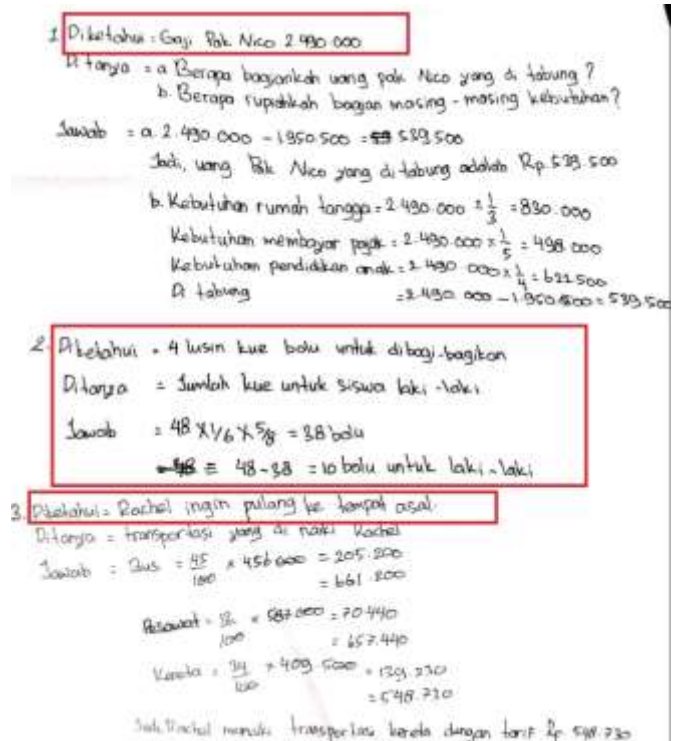 1 Diketahui = Gaji Pak Nico 2.490.000
Ditanya = a Berapa bagiankah uang pak Nico yang di tabung ?
b. Berapa rupiahkah bagian masing - masing kebutuhan?
Jawab = a. 2.490.000 - 1950.500 = 539.500
Jadi, uang Pak Nico yang di tabung adalah Rp. 539.500
b. Kebutuhan rumah tangga = 2.490.000 x 1/3 = 830.000
Kebutuhan membayar pajak = 2.490.000 x 1/5 = 498.000
Kebutuhan pendidikan anak = 2.490.000 x 1/4 = 622.500
Di tabung = 2.490.000 - 1.950.500 = 539.500
2. Diketahui = 4 lusin kue bolu untuk dibagi-bagikan
Ditanya = Jumlah kue untuk siswa laki-laki
Jawab = 48 x 1/6 x 5/8 = 38 bolu
= 48-38 = 10 bolu untuk laki-laki
3. Diketahui = Rachel ingin pulang ke tempat asal.
Ditanya = transportasi yang di naiki Rachel
Jawab = Bus = 45/100 x 456.000 = 205.200
= 661.200
Pesawat = 12/100 x 587.000 = 70.440
= 657.440
Kereta = 34/100 x 409.500 = 139.230
= 548.730
Jadi Rachel menaiki transportasi kereta dengan tarif Rp 548.730